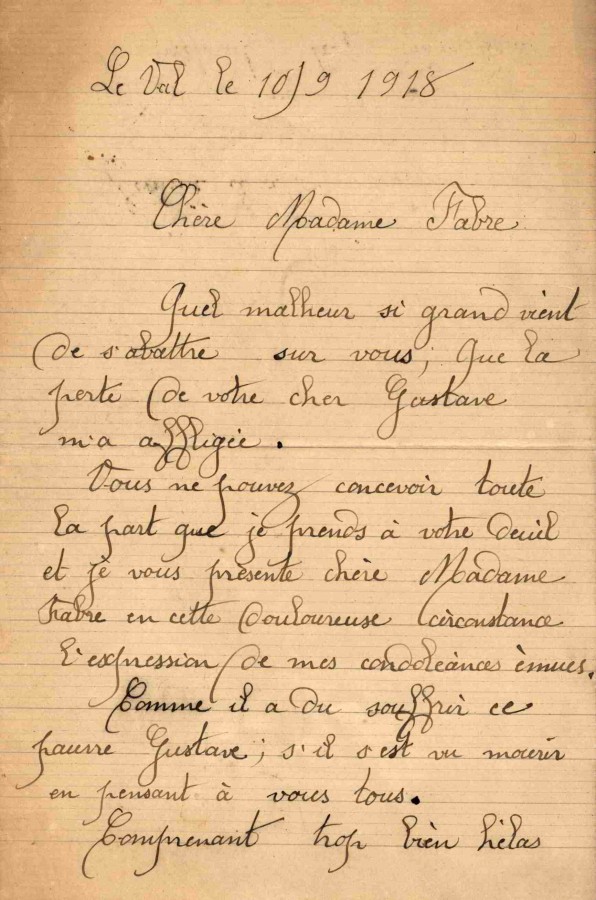 Le Val le 10/9 1918
Chère Madame Fabre
Quel malheur si grand vient
de s'abattre sur vous; Que la
perte de votre cher Gustave
m'a affligée.
Vous ne pouvez concevoir toute
la part que je prends à votre deuil
et je vous présente chère Madame
Fabre en cette douloureuse circonstance
l'expression de mes condoléances émues.
Comme il a du souffrir ce
pauvre Gustave; s'il s'est vu mourir
en pensant à vous tous.
Comprenant trop bien hélas